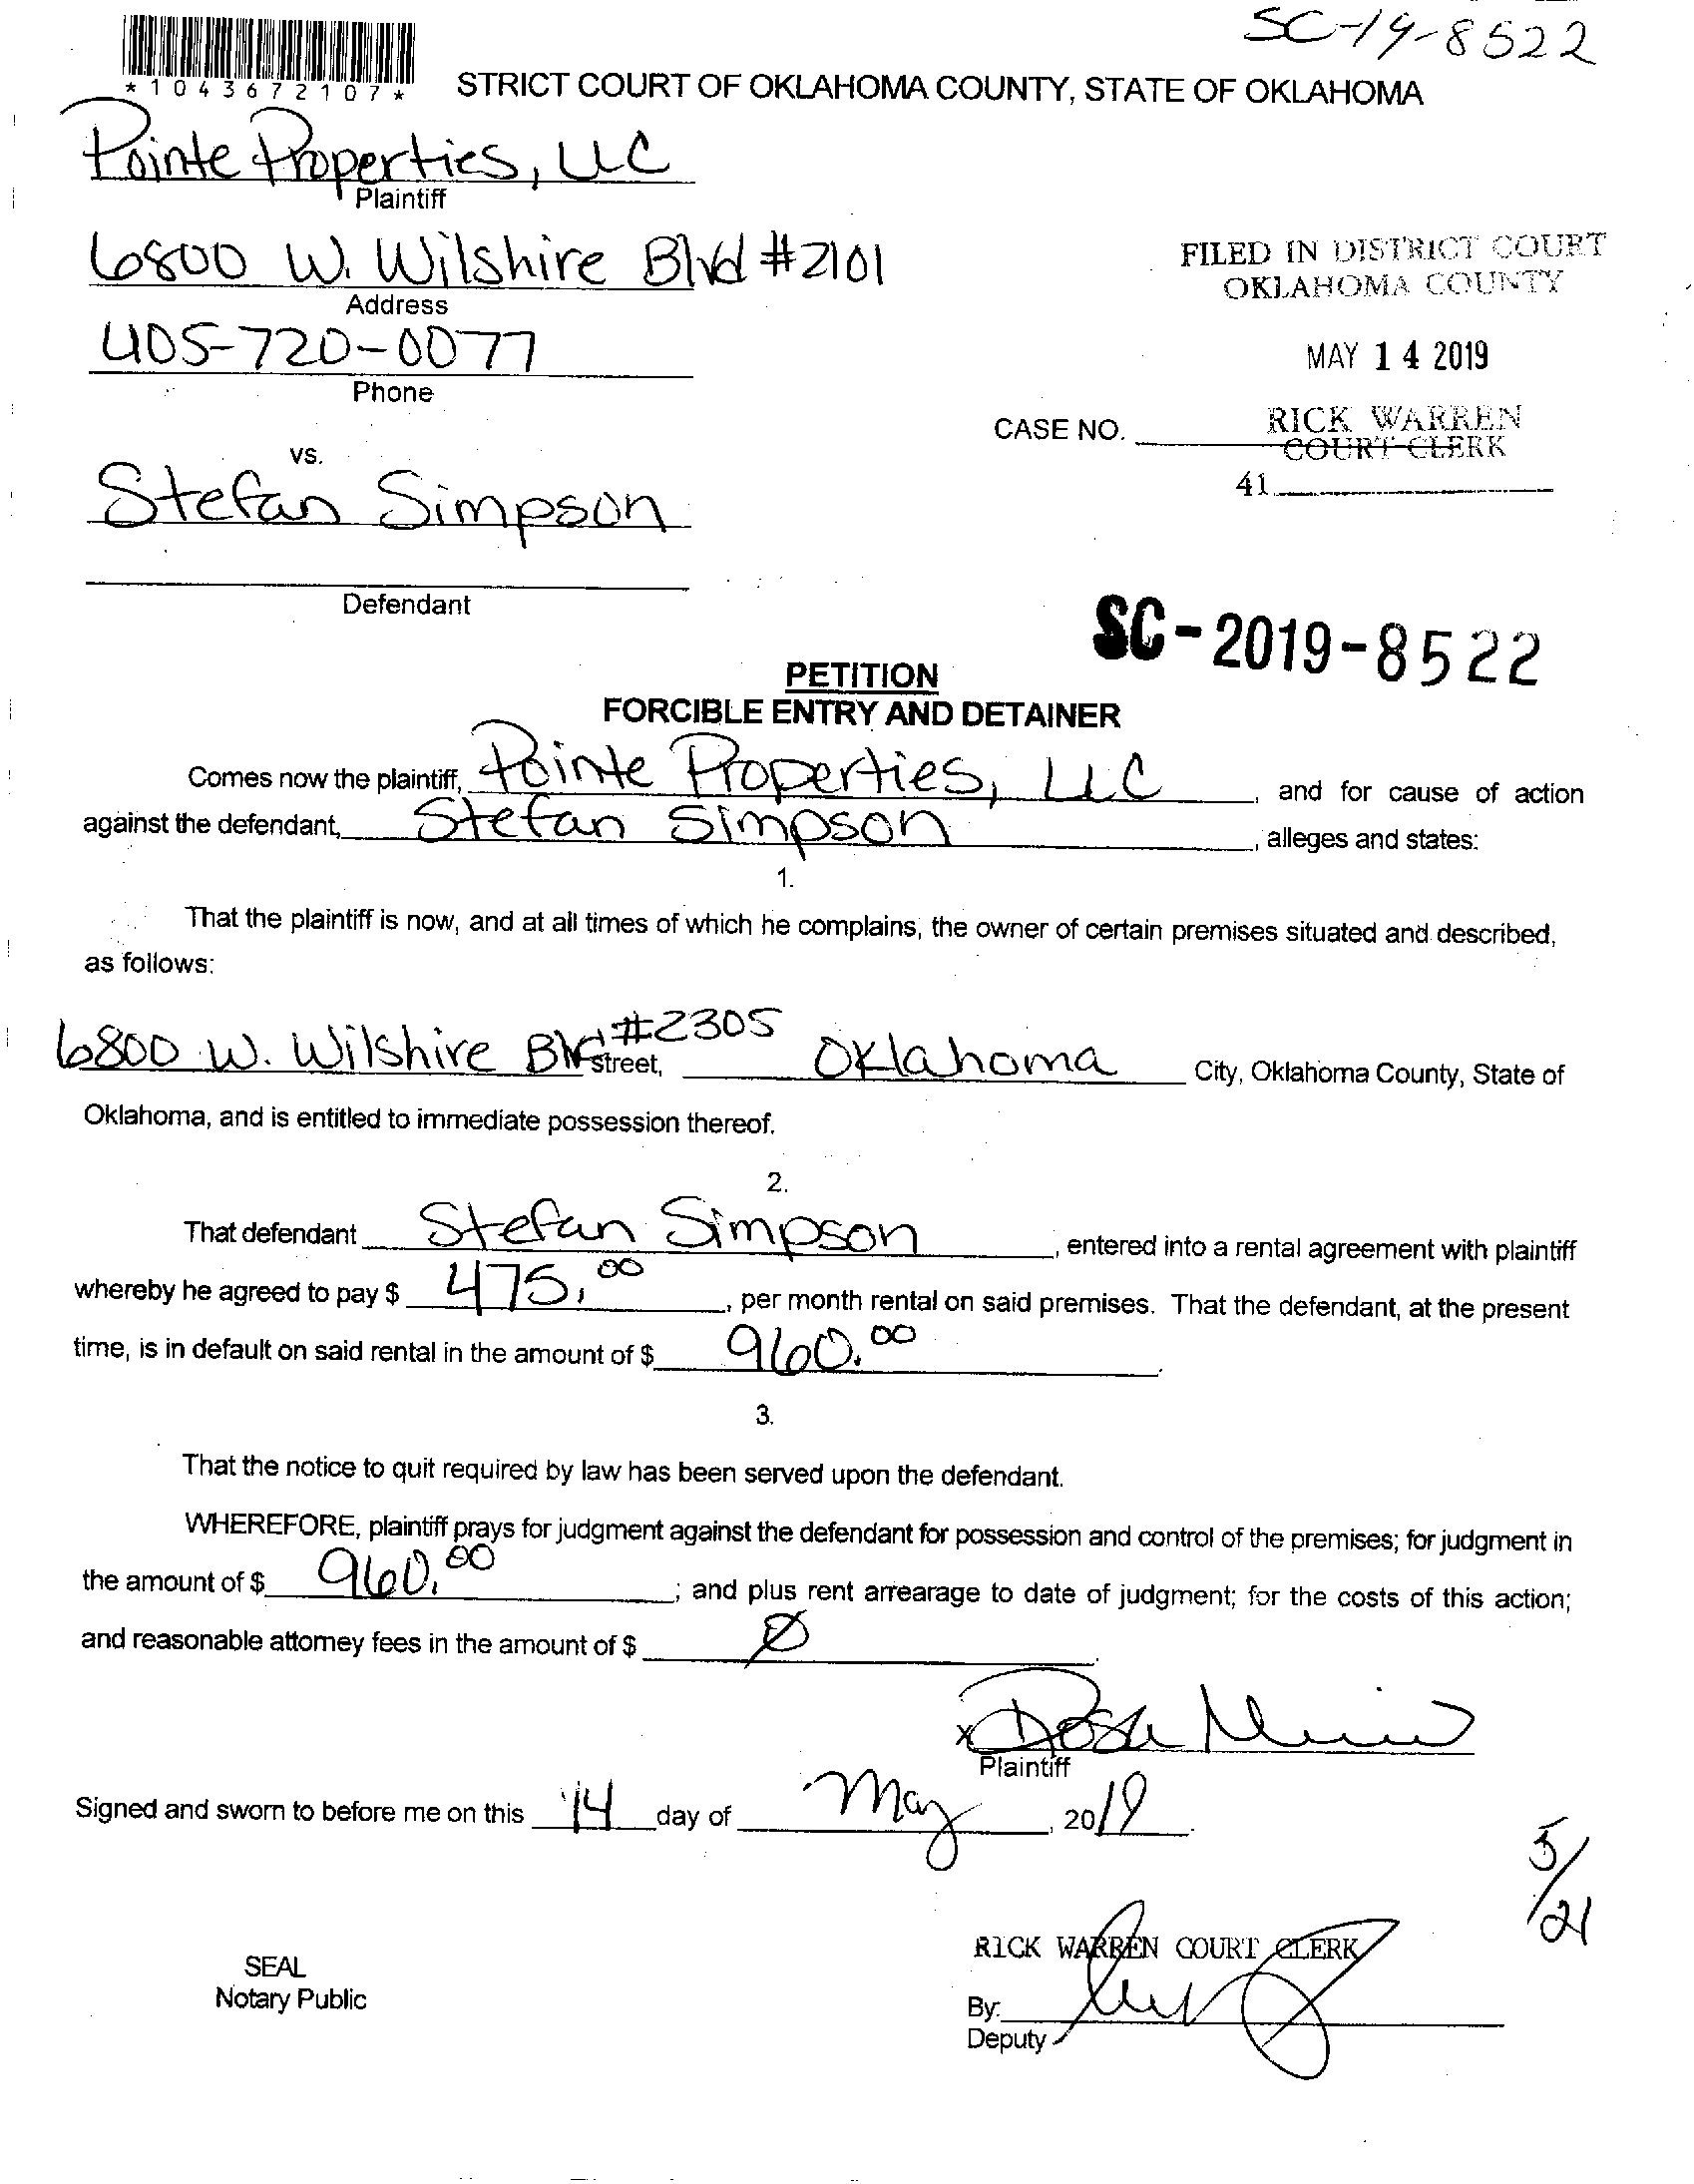 SC-19-8522
*1043672107*
STRICT COURT OF OKLAHOMA COUNTY, STATE OF OKLAHOMA
Pointe Properties, LLC
Plaintiff
6800 W. Wilshire Blvd #2101
Address
FILED IN DISTRICT COURT
OKLAHOMA COUNTY
405-720-0077
Phone
MAY 14 2019
CASE NO.
RICK WARREN
COURT CLERK
41
vs.
Stefan Simpson
Defendant
SC-2019-8522
PETITION
FORCIBLE ENTRY AND DETAINER
Comes now the plaintiff, Pointe Properties, LLC, and for cause of action
against the defendant, Stefan Simpson, alleges and states:
1.
That the plaintiff is now, and at all times of which he complains, the owner of certain premises situated and described,
as follows:
6800 W. Wilshire Blvd #2305 Street, Oklahoma City, Oklahoma County, State of
Oklahoma, and is entitled to immediate possession thereof.
2.
That defendant Stefan Simpson, entered into a rental agreement with plaintiff
whereby he agreed to pay $ 475.00, per month rental on said premises. That the defendant, at the present
time, is in default on said rental in the amount of $ 960.00.
3.
That the notice to quit required by law has been served upon the defendant.
WHEREFORE, plaintiff prays for judgment against the defendant for possession and control of the premises; for judgment in
the amount of $ 960.00; and plus rent arrearage to date of judgment; for the costs of this action;
and reasonable attorney fees in the amount of $ Ø.
x
Plaintiff
Signed and sworn to before me on this 14 day of May, 2019.
5/21
SEAL
Notary Public
RICK WARREN COURT CLERK
By:
Deputy